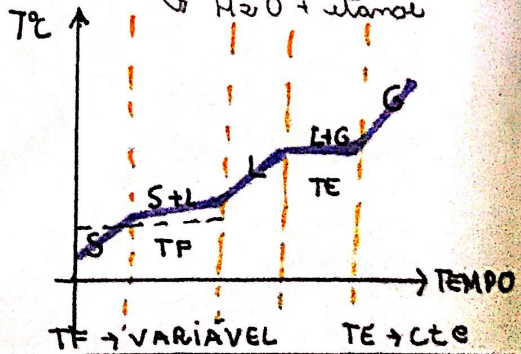 ↳ H2O + etanol
T°C
S
S+L
TF
L
L+G
TE
G
TEMPO
TF → VARIÁVEL
TE → Cte